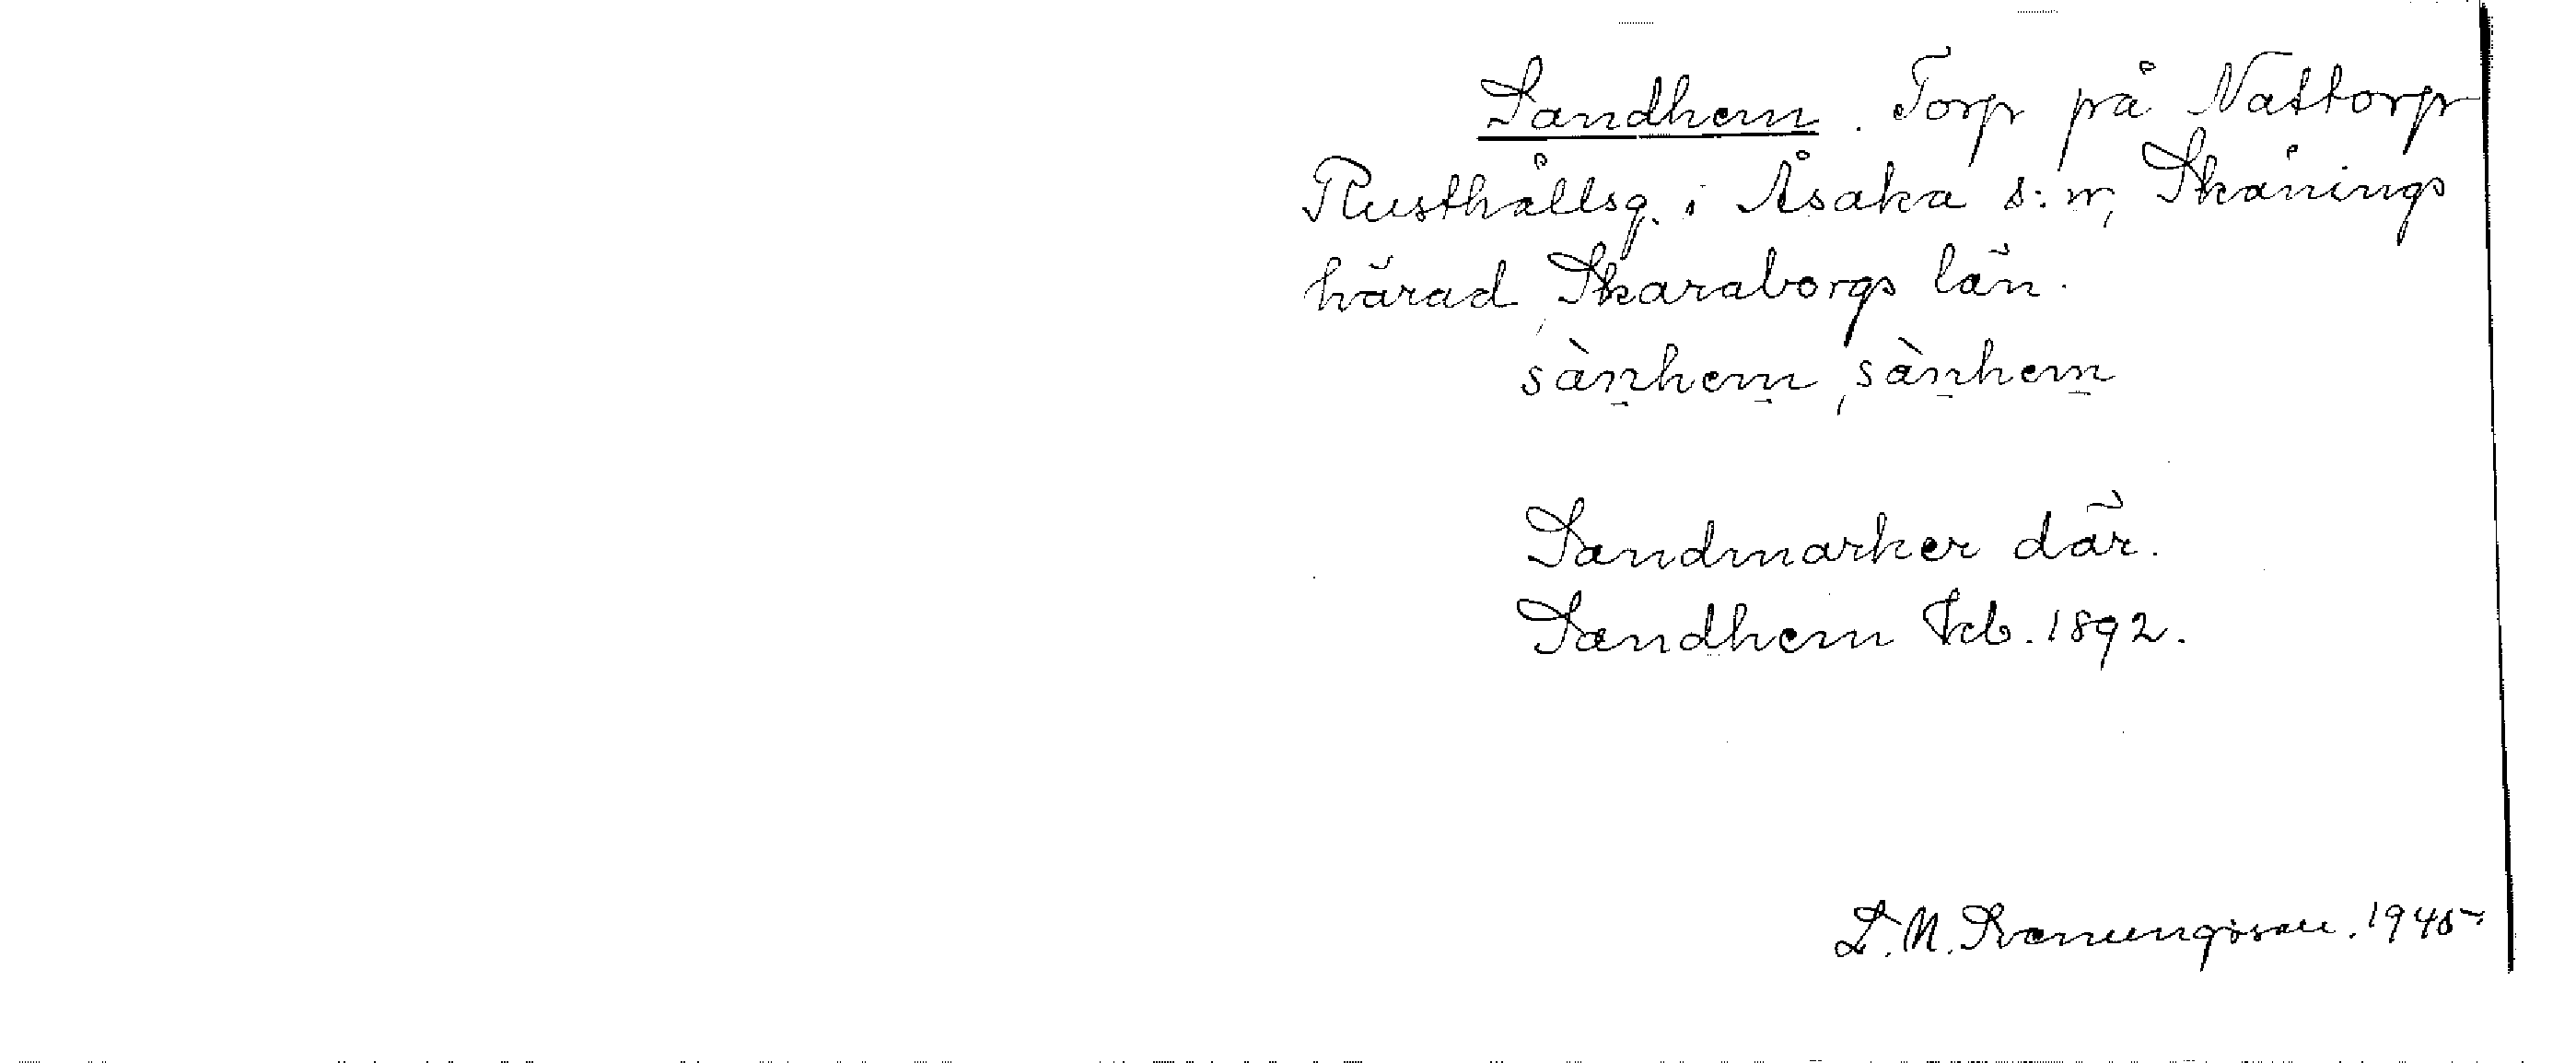 Sandhem. Torp på Nattorp
Rusthållsg. i Åsaka s:n, Skånings
härad, Skaraborgs län.
sàn̠hem̠, sàn̠hem̠
Sandmarker där.
Sandhem Jeb. 1892.
L. M. Svenungsson. 1945